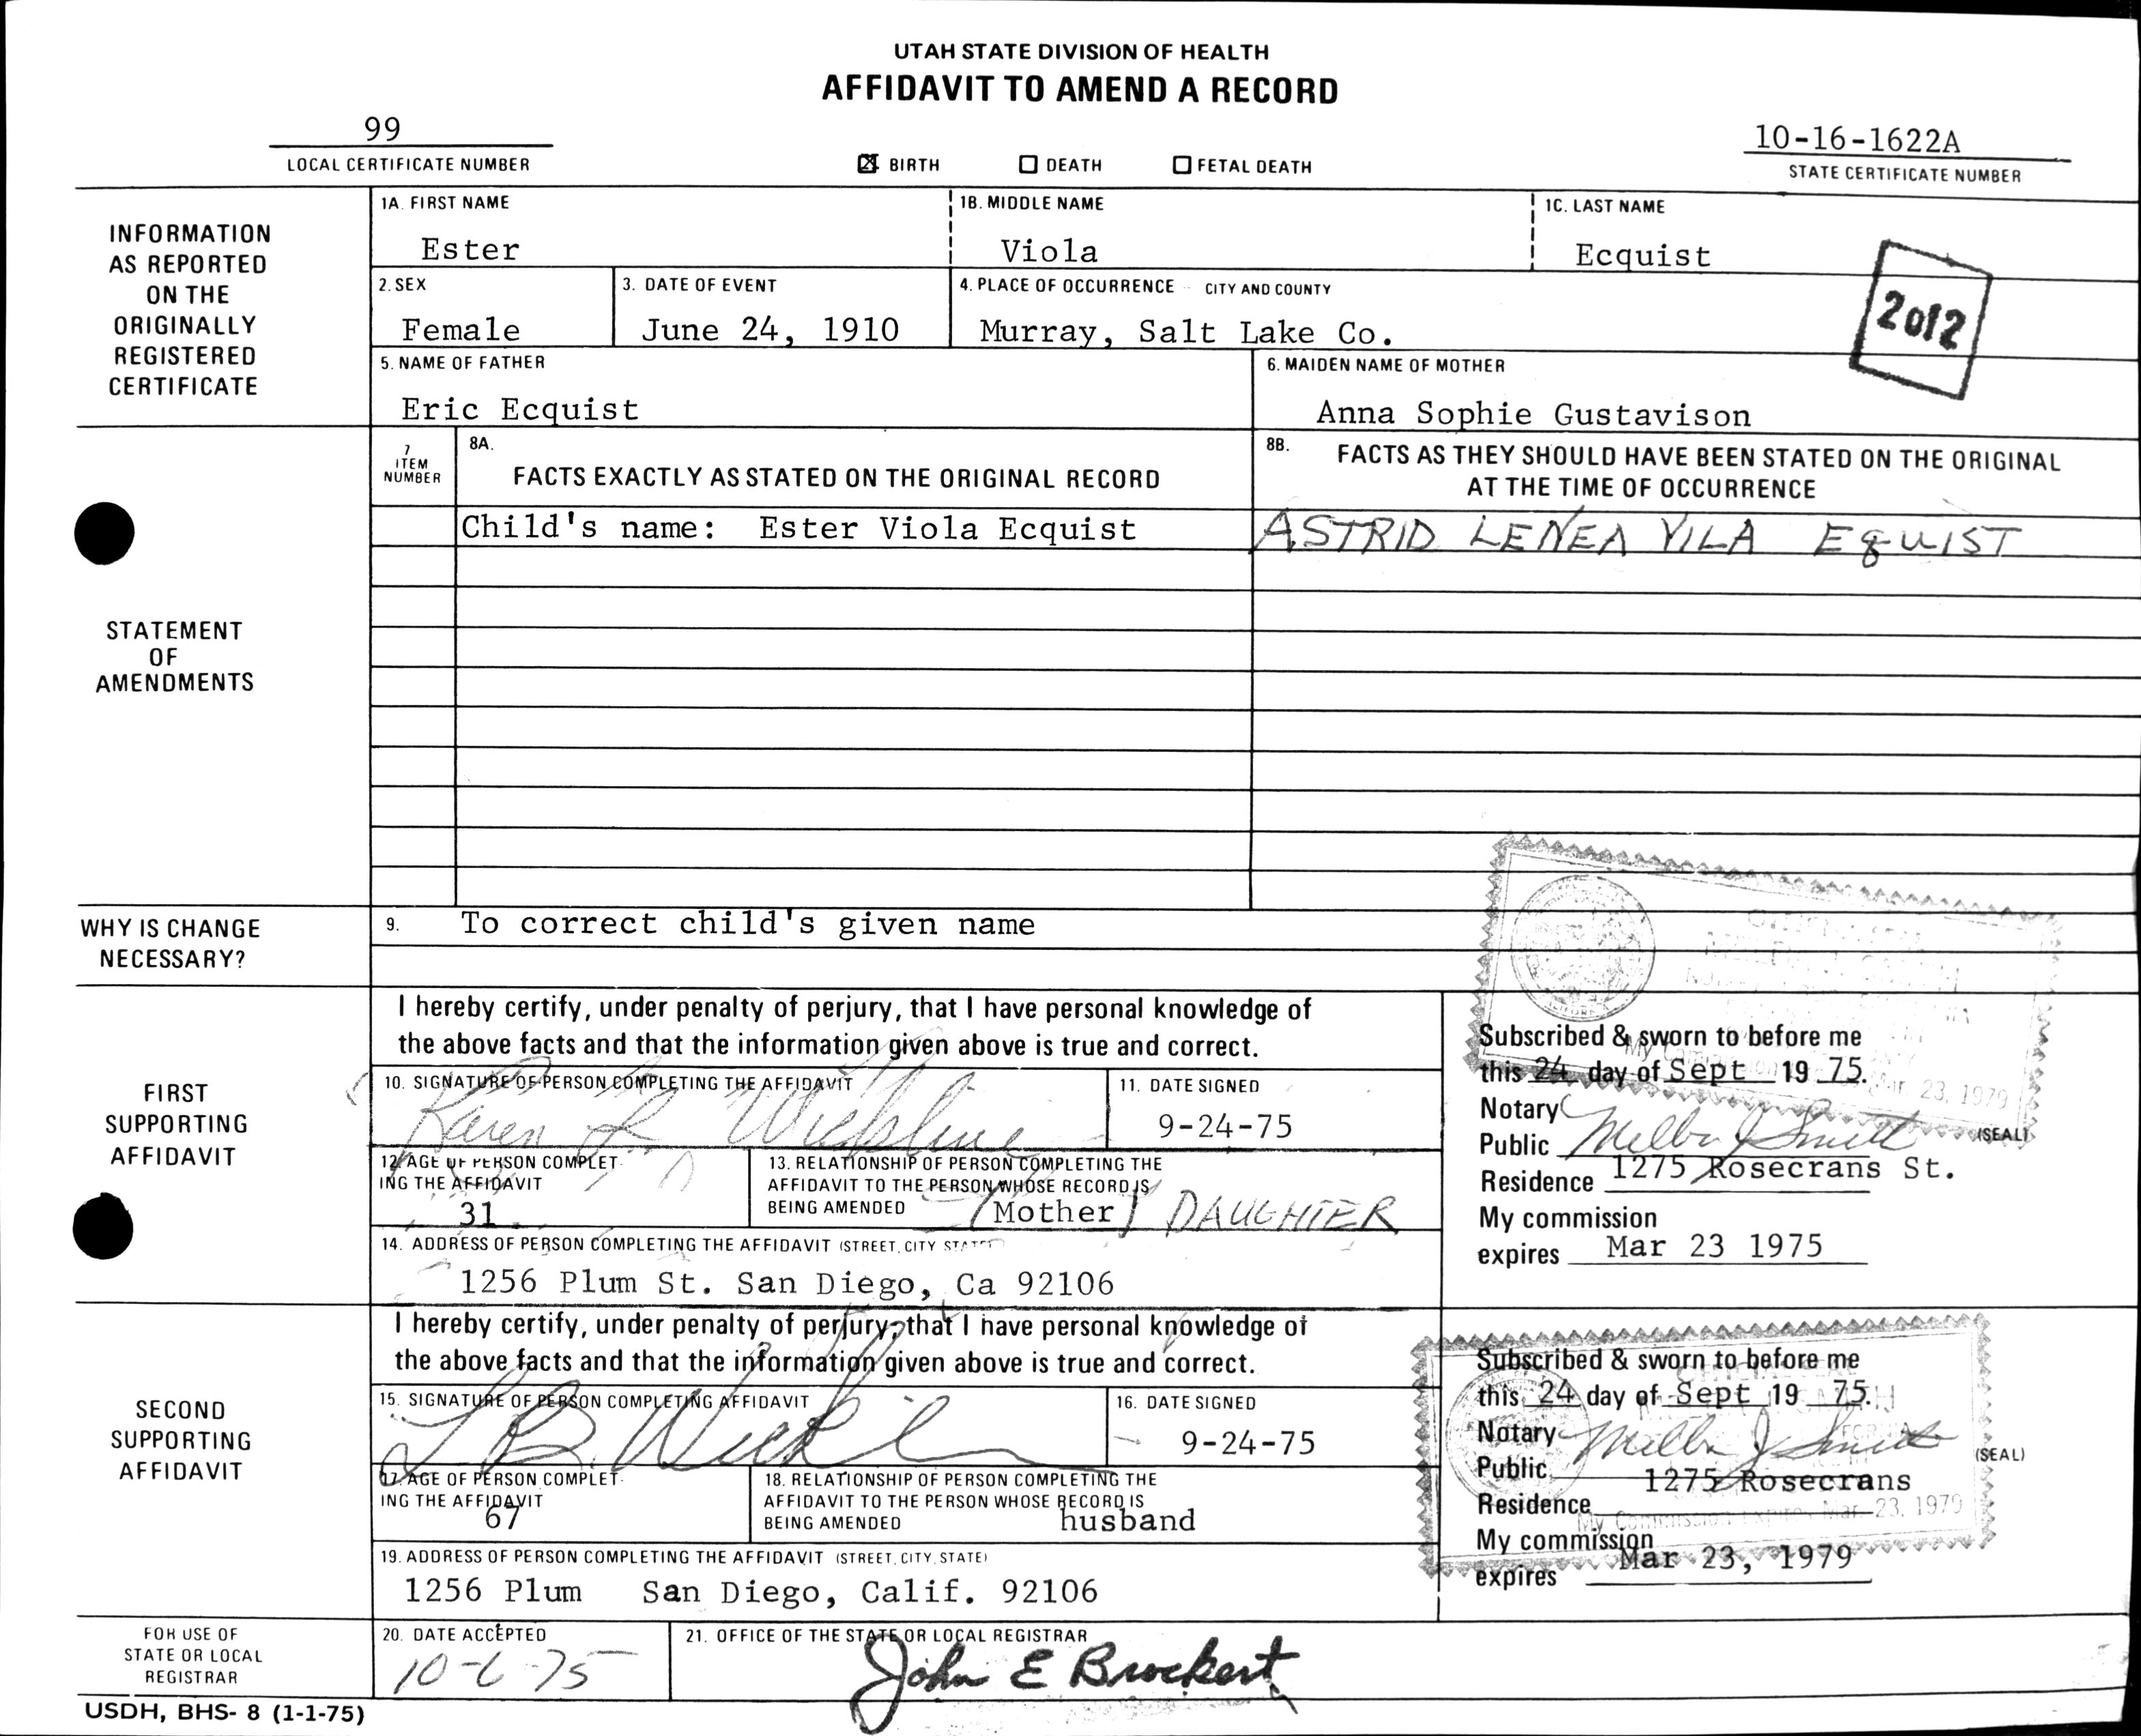 UTAH STATE DIVISION OF HEALTH
AFFIDAVIT TO AMEND A RECORD
99
LOCAL CERTIFICATE NUMBER
BIRTH DEATH FETAL DEATH
10-16-1622A
STATE CERTIFICATE NUMBER
INFORMATION
AS REPORTED
ON THE
ORIGINALLY
REGISTERED
CERTIFICATE
1A. FIRST NAME
Ester
1B. MIDDLE NAME
Viola
1C. LAST NAME
Ecquist
2. SEX
Female
3. DATE OF EVENT
June 24, 1910
4. PLACE OF OCCURRENCE CITY AND COUNTY
Murray, Salt Lake Co.
2 of 2
5. NAME OF FATHER
Eric Ecquist
6. MAIDEN NAME OF MOTHER
Anna Sophie Gustavison
STATEMENT
OF
AMENDMENTS
7
ITEM
NUMBER
8A.
FACTS EXACTLY AS STATED ON THE ORIGINAL RECORD
8B.
FACTS AS THEY SHOULD HAVE BEEN STATED ON THE ORIGINAL
AT THE TIME OF OCCURRENCE
Child's name: Ester Viola Ecquist
ASTRID LENEA VILA EQUIST
WHY IS CHANGE
NECESSARY?
9. To correct child's given name
FIRST
SUPPORTING
AFFIDAVIT
I hereby certify, under penalty of perjury, that I have personal knowledge of
the above facts and that the information given above is true and correct.
10. SIGNATURE OF PERSON COMPLETING THE AFFIDAVIT
Karen
11. DATE SIGNED
9-24-75
12. AGE OF PERSON COMPLET-
ING THE AFFIDAVIT
31
13. RELATIONSHIP OF PERSON COMPLETING THE
AFFIDAVIT TO THE PERSON WHOSE RECORD IS
BEING AMENDED (Mother) DAUGHTER
14. ADDRESS OF PERSON COMPLETING THE AFFIDAVIT (STREET, CITY STATE)
1256 Plum St. San Diego, Ca 92106
Subscribed & sworn to before me
this 24 day of Sept 19 75.
Mar 23, 1979
Notary
Public Melba J Smith (SEAL)
Residence 1275 Rosecrans St.
My commission
expires Mar 23 1975
SECOND
SUPPORTING
AFFIDAVIT
I hereby certify, under penalty of perjury, that I have personal knowledge of
the above facts and that the information given above is true and correct.
15. SIGNATURE OF PERSON COMPLETING AFFIDAVIT
16. DATE SIGNED
9-24-75
17. AGE OF PERSON COMPLET-
ING THE AFFIDAVIT
67
18. RELATIONSHIP OF PERSON COMPLETING THE
AFFIDAVIT TO THE PERSON WHOSE RECORD IS
BEING AMENDED husband
19. ADDRESS OF PERSON COMPLETING THE AFFIDAVIT (STREET, CITY, STATE)
1256 Plum San Diego, Calif. 92106
Subscribed & sworn to before me
this 24 day of Sept 19 75.
Notary Melba J Smith (SEAL)
Public 1275 Rosecrans
Residence
My Commission Expires Mar. 23, 1979
My commission
expires Mar 23, 1979
FOR USE OF
STATE OR LOCAL
REGISTRAR
20. DATE ACCEPTED
10-6-75
21. OFFICE OF THE STATE OR LOCAL REGISTRAR
John E Brockert
USDH, BHS- 8 (1-1-75)